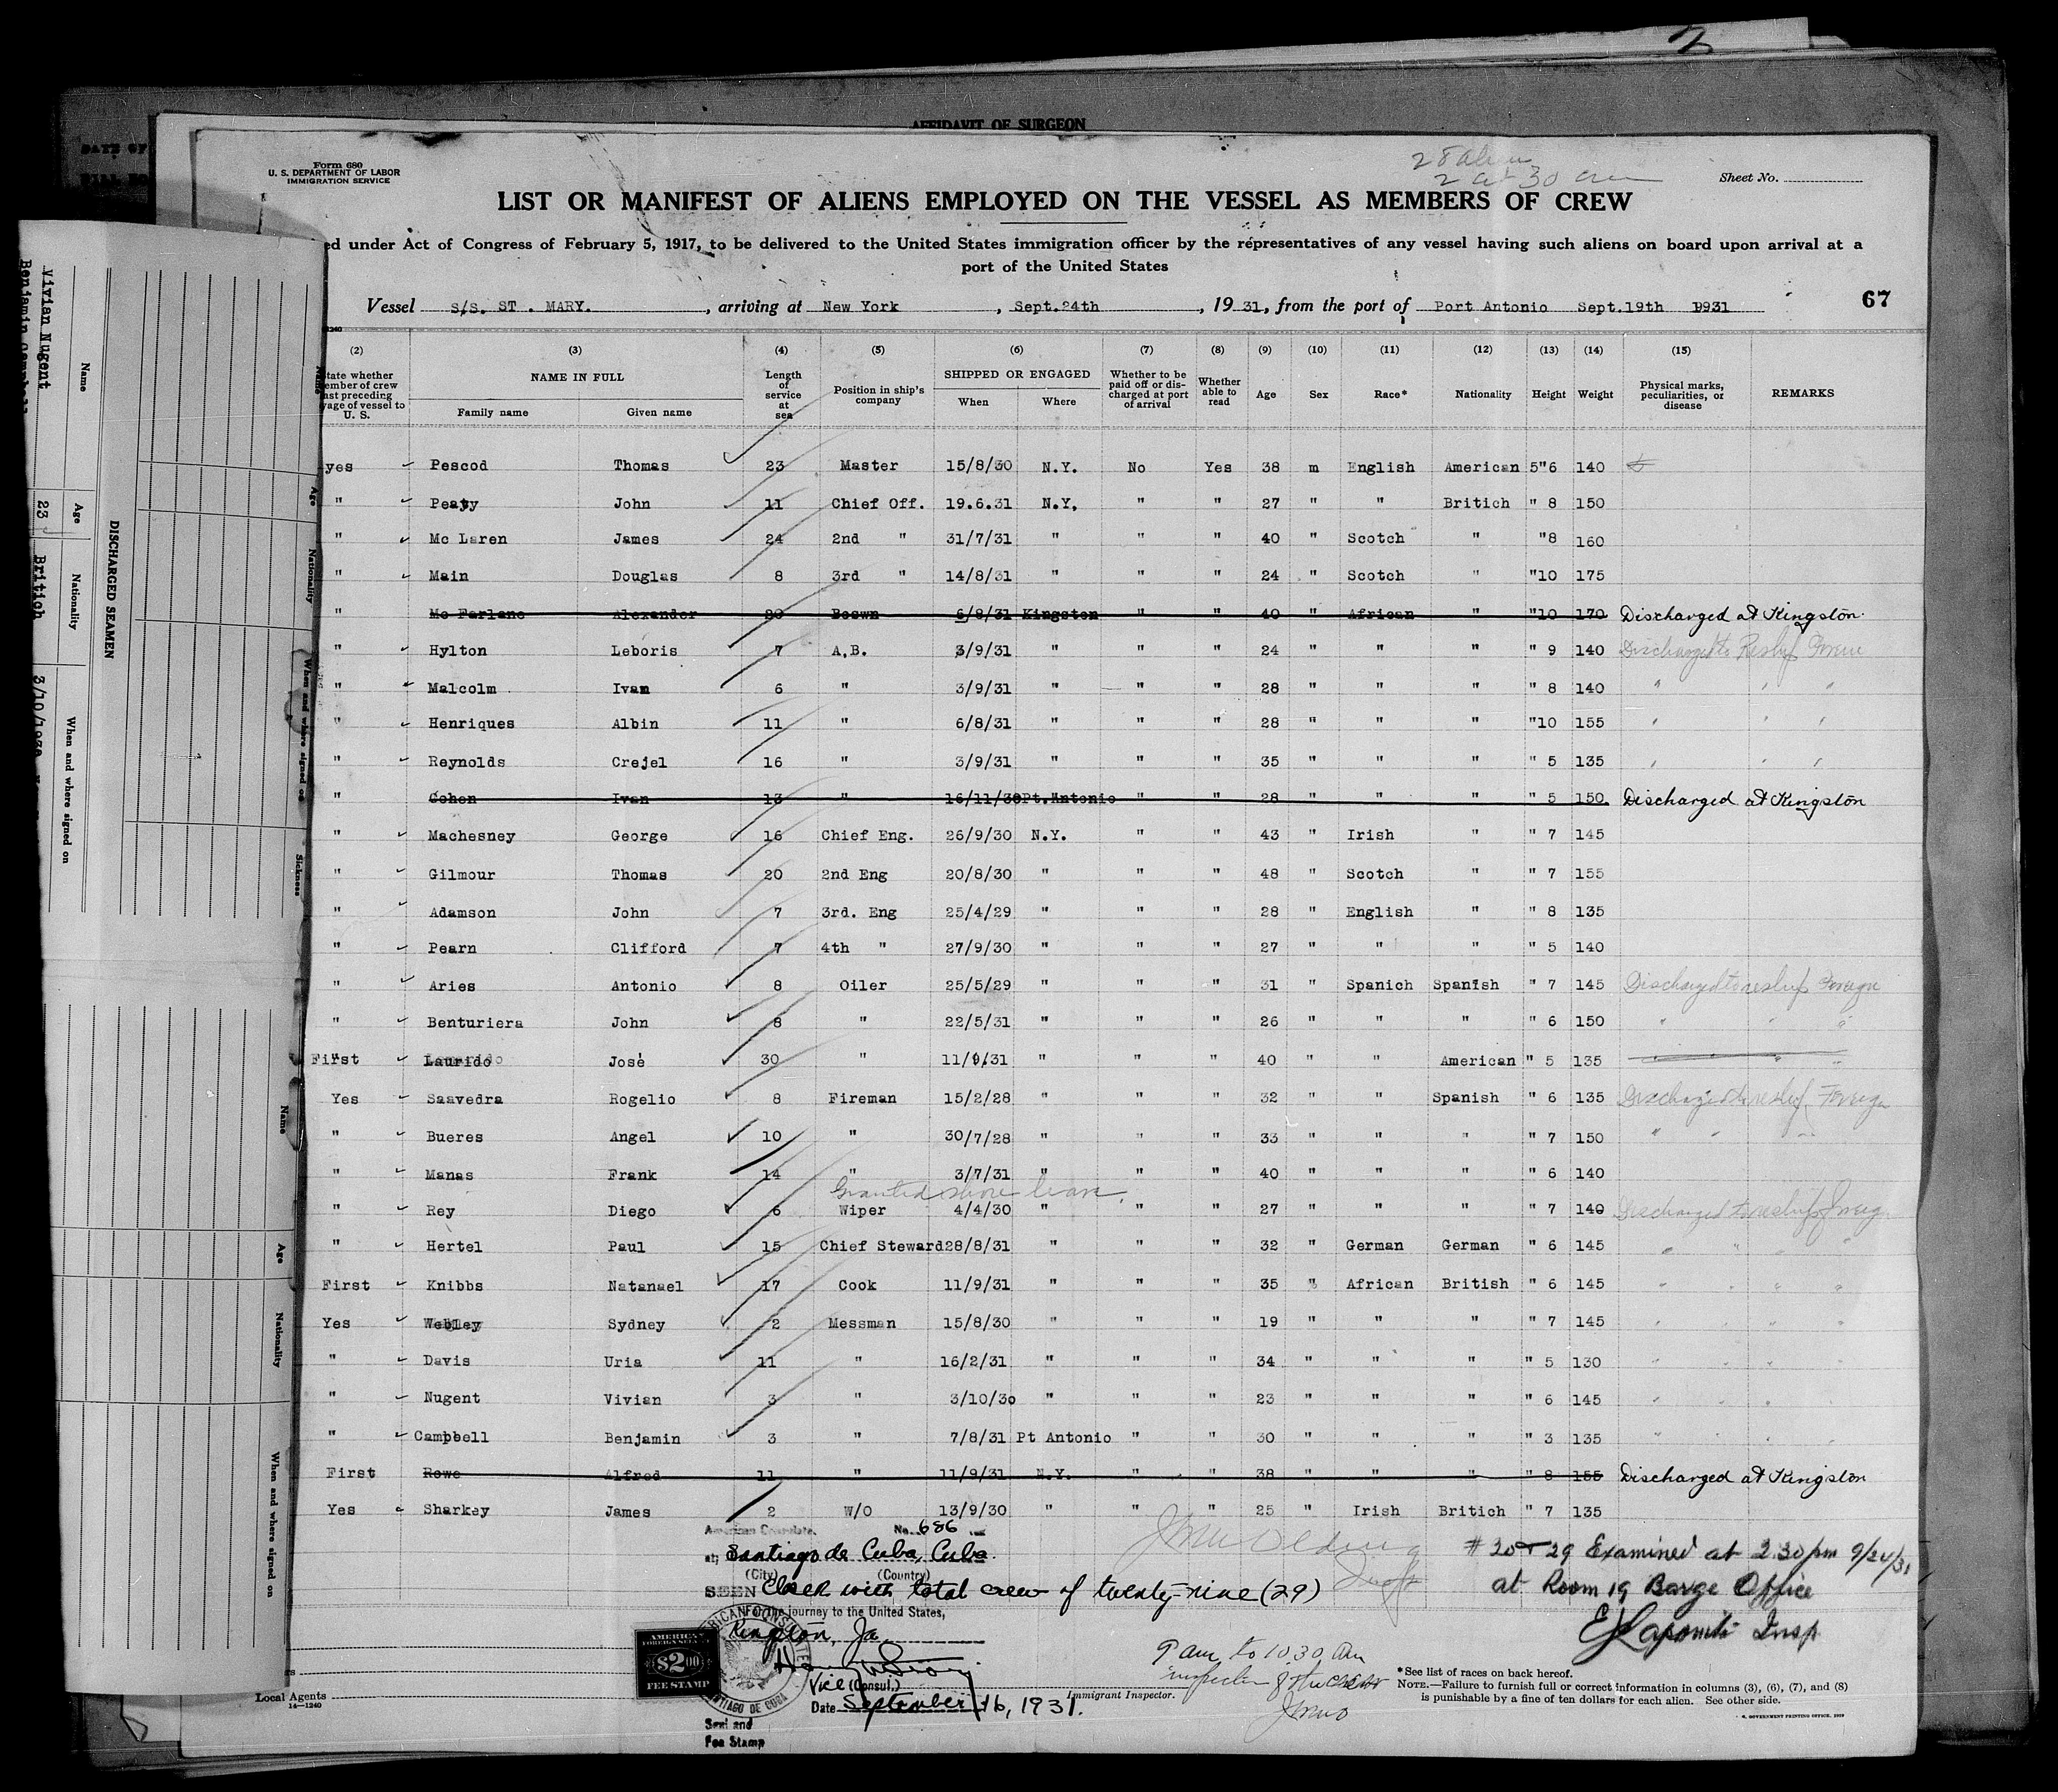 2
AFFIDAVIT OF SURGEON
Form 680
U. S. DEPARTMENT OF LABOR
IMMIGRATION SERVICE
Sheet No.
LIST OR MANIFEST OF ALIENS EMPLOYED ON THE VESSEL AS MEMBERS OF CREW
ed under Act of Congress of February 5, 1917, to be delivered to the United States immigration officer by the representatives of any vessel having such aliens on board upon arrival at a
port of the United States
67
Vessel s/s. ST . MARY. , arriving at New York , Sept.24th , 19 31, from the port of Port Antonio Sept.19th 1931
(2) (3) (4) (5) (6) (7) (8) (9) (10) (11) (12) (13) (14) (15)
tate whether ember of crew ast preceding yage of vessel to U. S. NAME IN FULL Family name Given name Length of service at sea Position in ship's company SHIPPED OR ENGAGED When Where Whether to be paid off or discharged at port of arrival Whether able to read Age Sex Race* Nationality Height Weight Physical marks, peculiarities, or disease REMARKS
yes Pescod Thomas 23 Master 15/8/30 N.Y. No Yes 38 m English American 5"6 140
" Peaty John 11 Chief Off. 19.6.31 N.Y. " " 27 " " Britich " 8 150
" Mc Laren James 24 2nd " 31/7/31 " " " 40 " Scotch " "8 160
" Main Douglas 8 3rd " 14/8/31 " " " 24 " Scotch " "10 175
" Mc Farlane Alexander 20 Boswn 6/8/31 Kingston " " 40 " African " "10 170 Discharged at Kingston
" Hylton Leboris 7 A.B. 3/9/31 " " " 24 " " " " 9 140 Discharged to Reship Foreign
" Malcolm Ivan 6 " 3/9/31 " " " 28 " " " " 8 140 " " "
" Henriques Albin 11 " 6/8/31 " " " 28 " " " "10 155 " " "
" Reynolds Crejel 16 " 3/9/31 " " " 35 " " " " 5 135 " " "
" Cohen Ivan 13 " 16/11/30 Pt.Antonio " " 28 " " " " 5 150 Discharged at Kingston
" Machesney George 16 Chief Eng. 26/9/30 N.Y. " " 43 " Irish " " 7 145
" Gilmour Thomas 20 2nd Eng 20/8/30 " " " 48 " Scotch " " 7 155
" Adamson John 7 3rd. Eng 25/4/29 " " " 28 " English " " 8 135
" Pearn Clifford 7 4th " 27/9/30 " " " 27 " " " " 5 140
" Aries Antonio 8 Oiler 25/5/29 " " " 31 " Spanich Spanish " 7 145 Discharged to reship Foreign
" Benturiera John 8 " 22/5/31 " " " 26 " " " " 6 150 " " "
First Laurido José 30 " 11/9/31 " " " 40 " " American " 5 135 " " " "
Yes Saavedra Rogelio 8 Fireman 15/2/28 " " " 32 " " Spanish " 6 135 Discharged to reship Foreign
" Bueres Angel 10 " 30/7/28 " " " 33 " " " " 7 150 " " "
" Manas Frank 14 " 3/7/31 " " " 40 " " " " 6 140
Granted shore leave.
" Rey Diego 6 Wiper 4/4/30 " " " 27 " " " " 7 140 Discharged to reship Foreig
" Hertel Paul 15 Chief Steward 28/8/31 " " " 32 " German German " 6 145 " " " "
First Knibbs Natanael 17 Cook 11/9/31 " " " 35 " African British " 6 145 " " " "
Yes Webley Sydney 2 Messman 15/8/30 " " " 19 " " " " 7 145 " " " "
" Davis Uria 11 " 16/2/31 " " " 34 " " " " 5 130 " " " "
" Nugent Vivian 3 " 3/10/30 " " " 23 " " " " 6 145 " " "
" Campbell Benjamin 3 " 7/8/31 Pt Antonio " " 30 " " " " 3 135 " " " "
First Rowe Alfred 11 " 11/9/31 N.Y. " " 38 " " " " 8 155 Discharged at Kingston
Yes Sharkey James 2 W/O 13/9/30 " " " 25 " Irish Britich " 7 135
American Consulate. No. 686
at Santiago de Cuba, Cuba.
(City) (Country)
SEEN Clear with total crew of twenty-nine (29)
For the journey to the United States,
Kingston, Ja
Vice (Consul.)
Date September 16, 1931.
Seal and
Fee Stamp
AMERICAN
FOREIGN SERVICE
$2.00
FEE STAMP
SANTIAGO DE CUBA
# 20 - 29 Examined at 2.30 pm 9/24/31
at Room 19 Barge Office
Insp
9 am to 10.30 am
Immigrant Inspector.
*See list of races on back hereof.
NOTE.—Failure to furnish full or correct information in columns (3), (6), (7), and (8)
is punishable by a fine of ten dollars for each alien. See other side.
GOVERNMENT PRINTING OFFICE
Local Agents
14—1240
DISCHARGED SEAMEN
Name Age Nationality When and where signed on
Vivian Nugent 23 Britich 3/10/1930
Benjamin Campbell
Name Age Nationality When and where signed on Sickness
Name Age Nationality When and where signed on